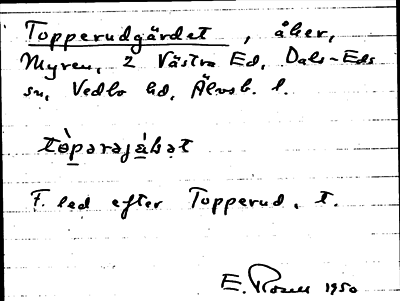 Topperudgärdet, åker,
Myren, 2 Västra Ed, Dals-Eds
sn, Vedbo hd, Älvsb. l.
F. led efter Topperud, t.
E. 1950